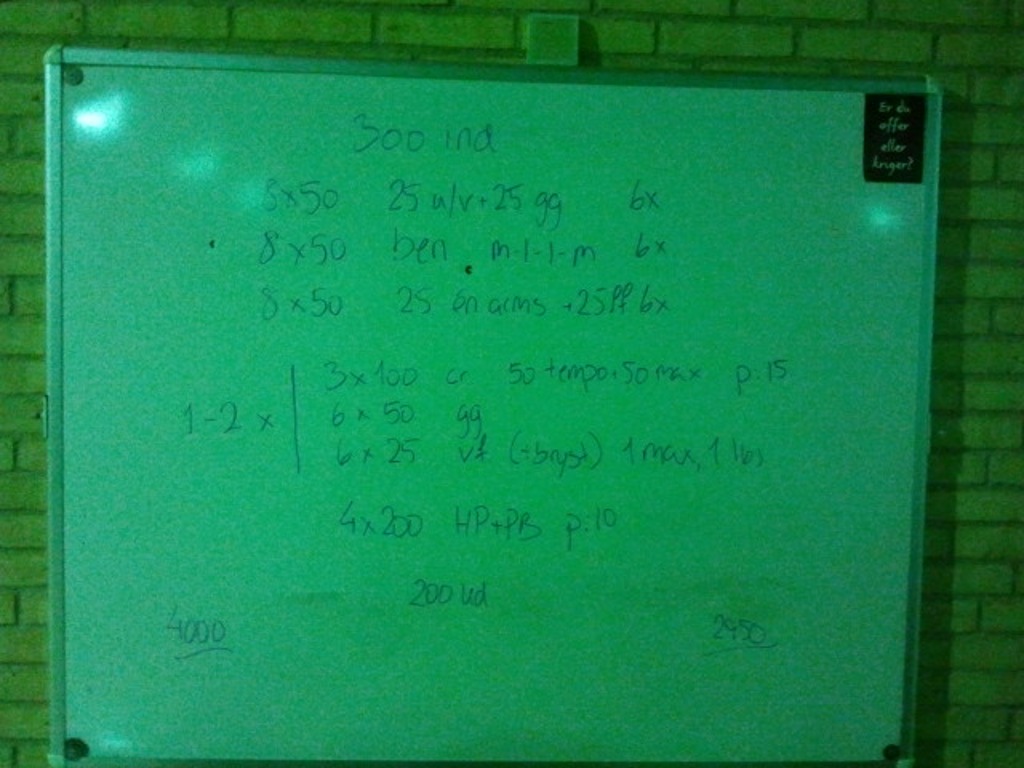 300 ind
8x50 25 u/v+25 gg 6x
8x50 ben m-l-l-m 6x
8x50 25 én arms +25 ff 6x
1-2 x
3x100 cr 50 tempo+50 max p.15
6x50 gg
6x25 vf (÷bryst) 1 max, 1 las
4x200 HP+PB p.10
200 ud
4000
2950
Er du
offer
eller
kriger?